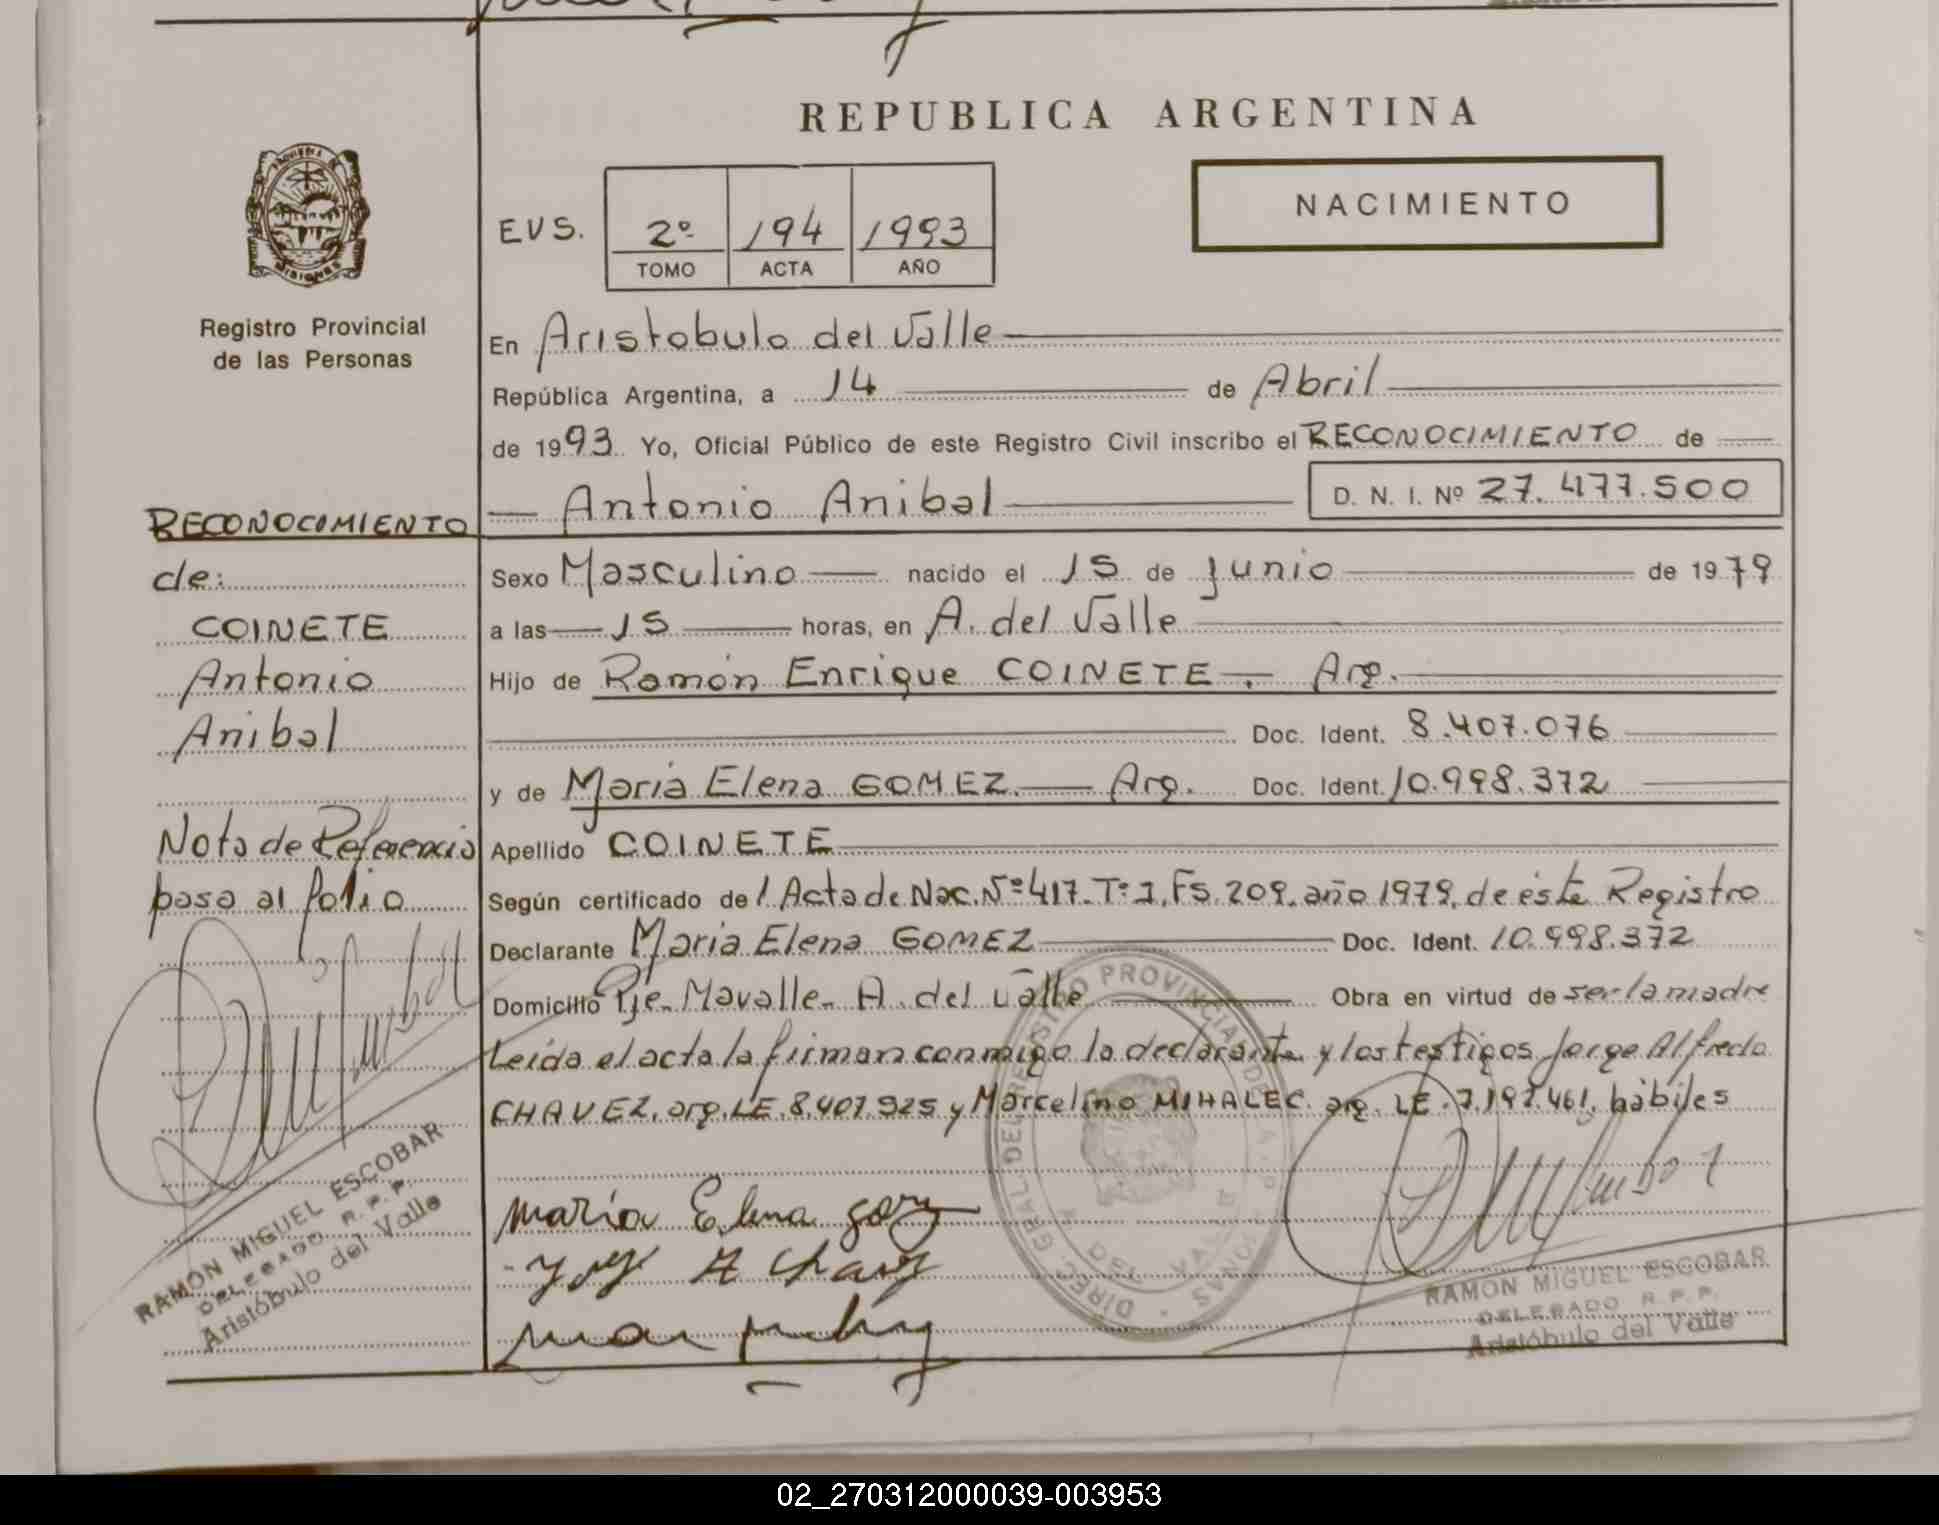 REPUBLICA ARGENTINA
NACIMIENTO
EVS.
2º 194 1993
TOMO ACTA AÑO
PROVINCIA DE
MISIONES
Registro Provincial
de las Personas
RECONOCIMIENTO
de:
COINETE
Antonio
Anibal
Nota de Referencia
pasa al folio
RAMON MIGUEL ESCOBAR
DELEGADO R. P. P.
Aristóbulo del Valle
En Aristobulo del Valle
República Argentina, a 14 de Abril
de 1993 Yo, Oficial Público de este Registro Civil inscribo el RECONOCIMIENTO de
Antonio Anibal D. N. I. Nº 27.477.500
Sexo Masculino nacido el 15 de Junio de 1979
a las 15 horas, en A. del Valle
Hijo de Ramón Enrique COINETE. Arg.
Doc. Ident. 8.407.076
y de Maria Elena GOMEZ. Arg. Doc. Ident. 10.998.372
Apellido COINETE
Según certificado de l Acta de Nac. Nº 417. Tº 1, Fs. 209, año 1979, de éste Registro
Declarante Maria Elena GOMEZ Doc. Ident. 10.998.372
Domicilio Pje. Mavalle. A. del Valle Obra en virtud de ser la madre
Leída el acta la firman conmigo la declarante y los testigos Jorge Alfredo
CHAVEZ. arg. LE. 8.407.925 y Marcelino MIHALEC. arg. LE. 7.197.461, hábiles
María Elena
DIREC. GRAL. DEL REGISTRO PROVINCIAL DE LAS PERSONAS
A. DEL VALLE
RAMON MIGUEL ESCOBAR
DELEGADO R. P. P.
Aristóbulo del Valle
02_270312000039-003953